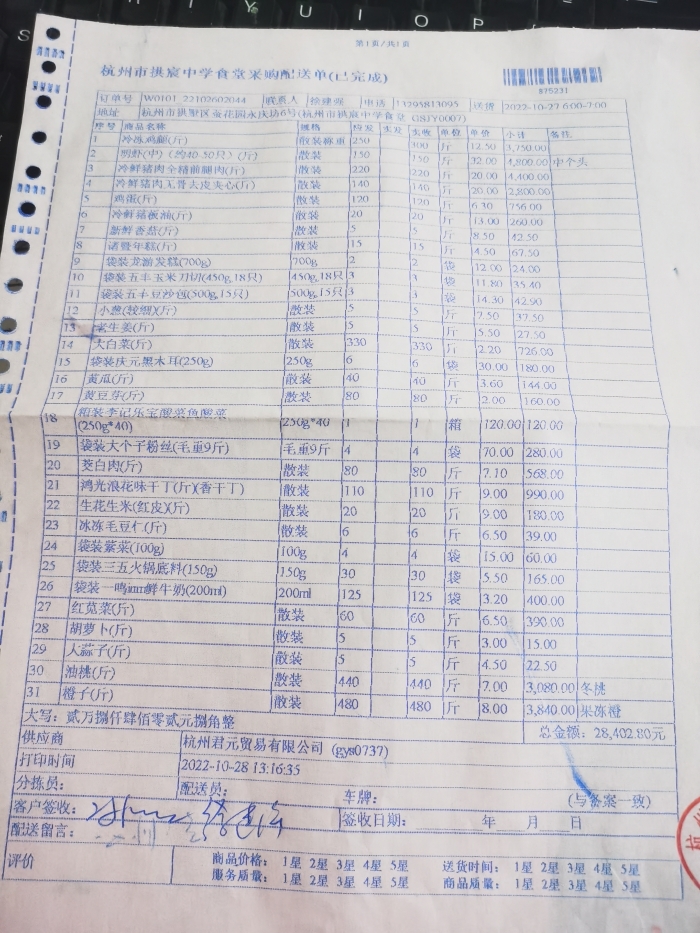 第1页/共1页
杭州市拱宸中学食堂采购配送单(已完成)
875231
订单号 W0101_22102602044 联系人 徐建强 电话 13295813095 送货 2022-10-27 6:00-7:00
地址 杭州市拱墅区蚕花园永庆坊6号(杭州市拱宸中学食堂 GSJY0007)
序号 商品名称 规格 应发 实发 实收 单位 单价 小计 备注
1 冷冻鸡腿(斤) 散装称重 250 300 斤 12.50 3,750.00
2 明虾(中)(约40-50只)(斤) 散装 150 150 斤 32.00 4,800.00 中个头
3 冷鲜猪肉全精前腿肉(斤) 散装 220 220 斤 20.00 4,400.00
4 冷鲜猪肉无骨去皮夹心(斤) 散装 140 140 斤 20.00 2,800.00
5 鸡蛋(斤) 散装 120 120 斤 6.30 756.00
6 冷鲜猪板油(斤) 散装 20 20 斤 13.00 260.00
7 新鲜香菇(斤) 散装 5 5 斤 8.50 42.50
8 诸暨年糕(斤) 散装 15 15 斤 4.50 67.50
9 袋装龙游发糕(700g) 700g 2 2 袋 12.00 24.00
10 袋装五丰玉米刀切(450g,18只) 450g,18只 3 3 袋 11.80 35.40
11 袋装五丰豆沙包(500g,15只) 500g,15只 3 3 袋 14.30 42.90
12 小葱(较细)(斤) 散装 5 5 斤 7.50 37.50
13 老生姜(斤) 散装 5 5 斤 5.50 27.50
14 大白菜(斤) 散装 330 330 斤 2.20 726.00
15 袋装庆元黑木耳(250g) 250g 6 6 袋 30.00 180.00
16 黄瓜(斤) 散装 40 40 斤 3.60 144.00
17 黄豆芽(斤) 散装 80 80 斤 2.00 160.00
18 箱装李记乐宝酸菜鱼酸菜
(250g*40) 250g*40 1 1 箱 120.00 120.00
19 袋装大个子粉丝(毛重9斤) 毛重9斤 4 4 袋 70.00 280.00
20 茭白肉(斤) 散装 80 80 斤 7.10 568.00
21 鸿光浪花味干丁(斤)(香干丁) 散装 110 110 斤 9.00 990.00
22 生花生米(红皮)(斤) 散装 20 20 斤 9.00 180.00
23 冰冻毛豆仁(斤) 散装 6 6 斤 6.50 39.00
24 袋装紫菜(100g) 100g 4 4 袋 15.00 60.00
25 袋装三五火锅底料(150g) 150g 30 30 袋 5.50 165.00
26 袋装一鸣imm鲜牛奶(200ml) 200ml 125 125 袋 3.20 400.00
27 红苋菜(斤) 散装 60 60 斤 6.50 390.00
28 胡萝卜(斤) 散装 5 5 斤 3.00 15.00
29 大蒜子(斤) 散装 5 5 斤 4.50 22.50
30 油桃(斤) 散装 440 440 斤 7.00 3,080.00 冬桃
31 橙子(斤) 散装 480 480 斤 8.00 3,840.00 果冻橙
大写：贰万捌仟肆佰零贰元捌角整 总金额：28,402.80元
供应商 杭州君元贸易有限公司 (gys0737)
打印时间 2022-10-28 13:16:35
分拣员： 配送员： 车牌： (与备案一致)
客户签收： 签收日期： 年 月 日
配送留言：
评价 商品价格： 1星 2星 3星 4星 5星 送货时间： 1星 2星 3星 4星 5星
服务质量： 1星 2星 3星 4星 5星 商品质量： 1星 2星 3星 4星 5星